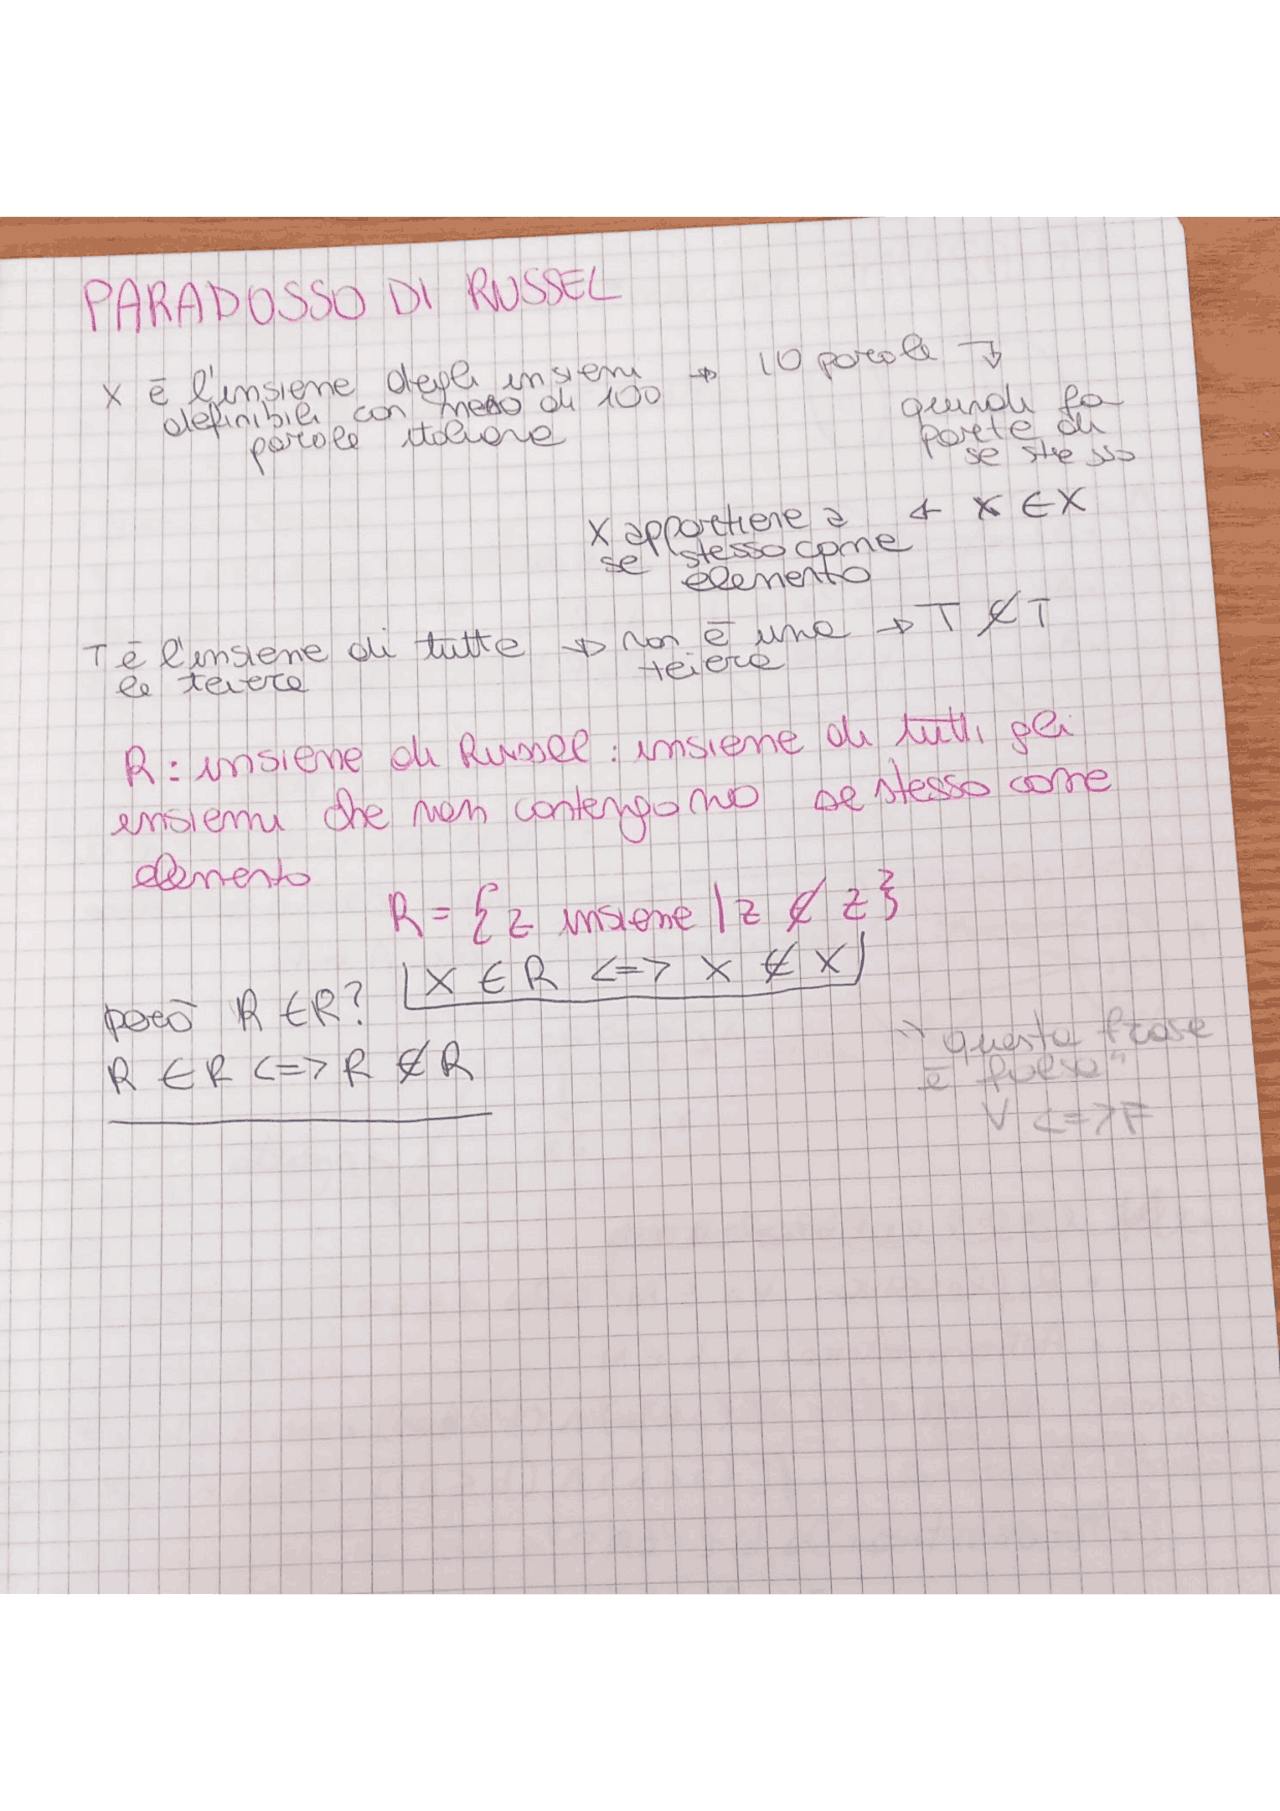 PARADOSSO DI RUSSEL
X è l'insieme degli insiemi → 10 parole ↴
definibili con meno di 100
parole italiane
quindi fa
parte di
se stesso
X appartiene a ← X ∈ X
se stesso come
elemento
T è l'insieme di tutte → non è una → T ∉ T
le teiere
teiera
R: insieme di Russel: insieme di tutti gli
insiemi che non contengono se stesso come
elemento
R = {z insieme | z ∉ z}
X ∈ R <=> X ∉ X
però R ∈ R?
R ∈ R <=> R ∉ R
"questa frase
è falsa"
V <=> F